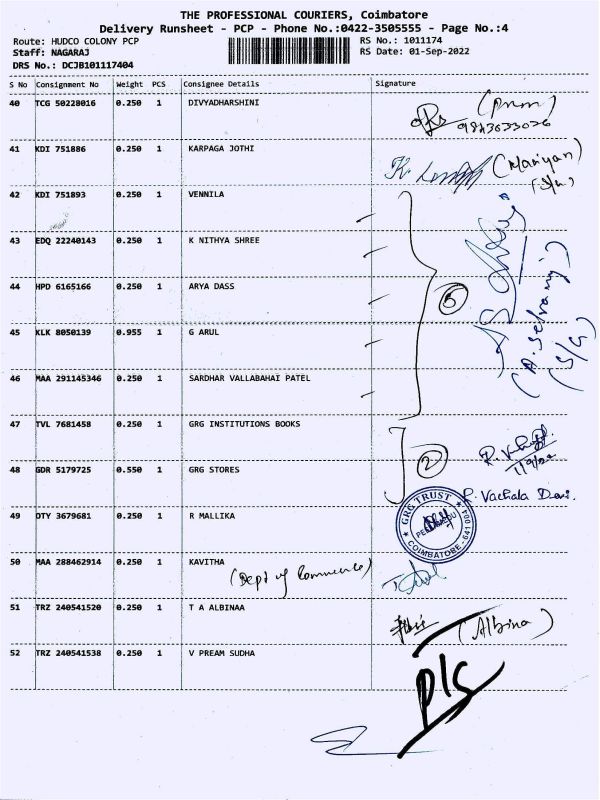 THE PROFESSIONAL COURIERS, Coimbatore
Delivery Runsheet - PCP - Phone No.:0422-3505555 - Page No.:4
Route: HUDCO COLONY PCP
RS No.: 1011174
Staff: NAGARAJ
RS Date: 01-Sep-2022
DRS No.: DCJB101117404
S No Consignment No Weight PCS Consignee Details Signature
40 TCG 50228016 0.250 1 DIVYADHARSHINI
41 KDI 751886 0.250 1 KARPAGA JOTHI
(Mariyan)
(S/G)
42 KDI 751893 0.250 1 VENNILA
43 EDQ 22240143 0.250 1 K NITHYA SHREE
44 HPD 6165166 0.250 1 ARYA DASS
5
(A. Selvaraj)
(S/G)
45 KLK 8050139 0.955 1 G ARUL
46 MAA 291145346 0.250 1 SARDHAR VALLABAHAI PATEL
47 TVL 7681458 0.250 1 GRG INSTITUTIONS BOOKS
2
1/9/22
48 GDR 5179725 0.550 1 GRG STORES
R. Vachala Devi.
GRG TRUST
COIMBATORE-641 004
49 DTY 3679681 0.250 1 R MALLIKA
50 MAA 288462914 0.250 1 KAVITHA
(Dept of Commerce)
51 TRZ 240541520 0.250 1 T A ALBINAA
(Albina)
52 TRZ 240541538 0.250 1 V PREAM SUDHA